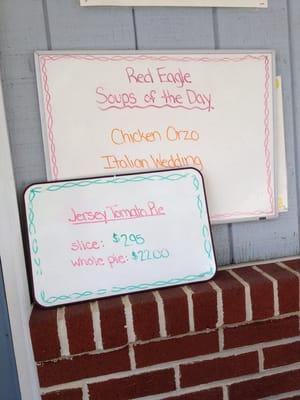 Red Eagle
Soups of the Day
Chicken Orzo
Italian Wedding
Jersey Tomato Pie
slice: $2.95
whole pie: $22.00